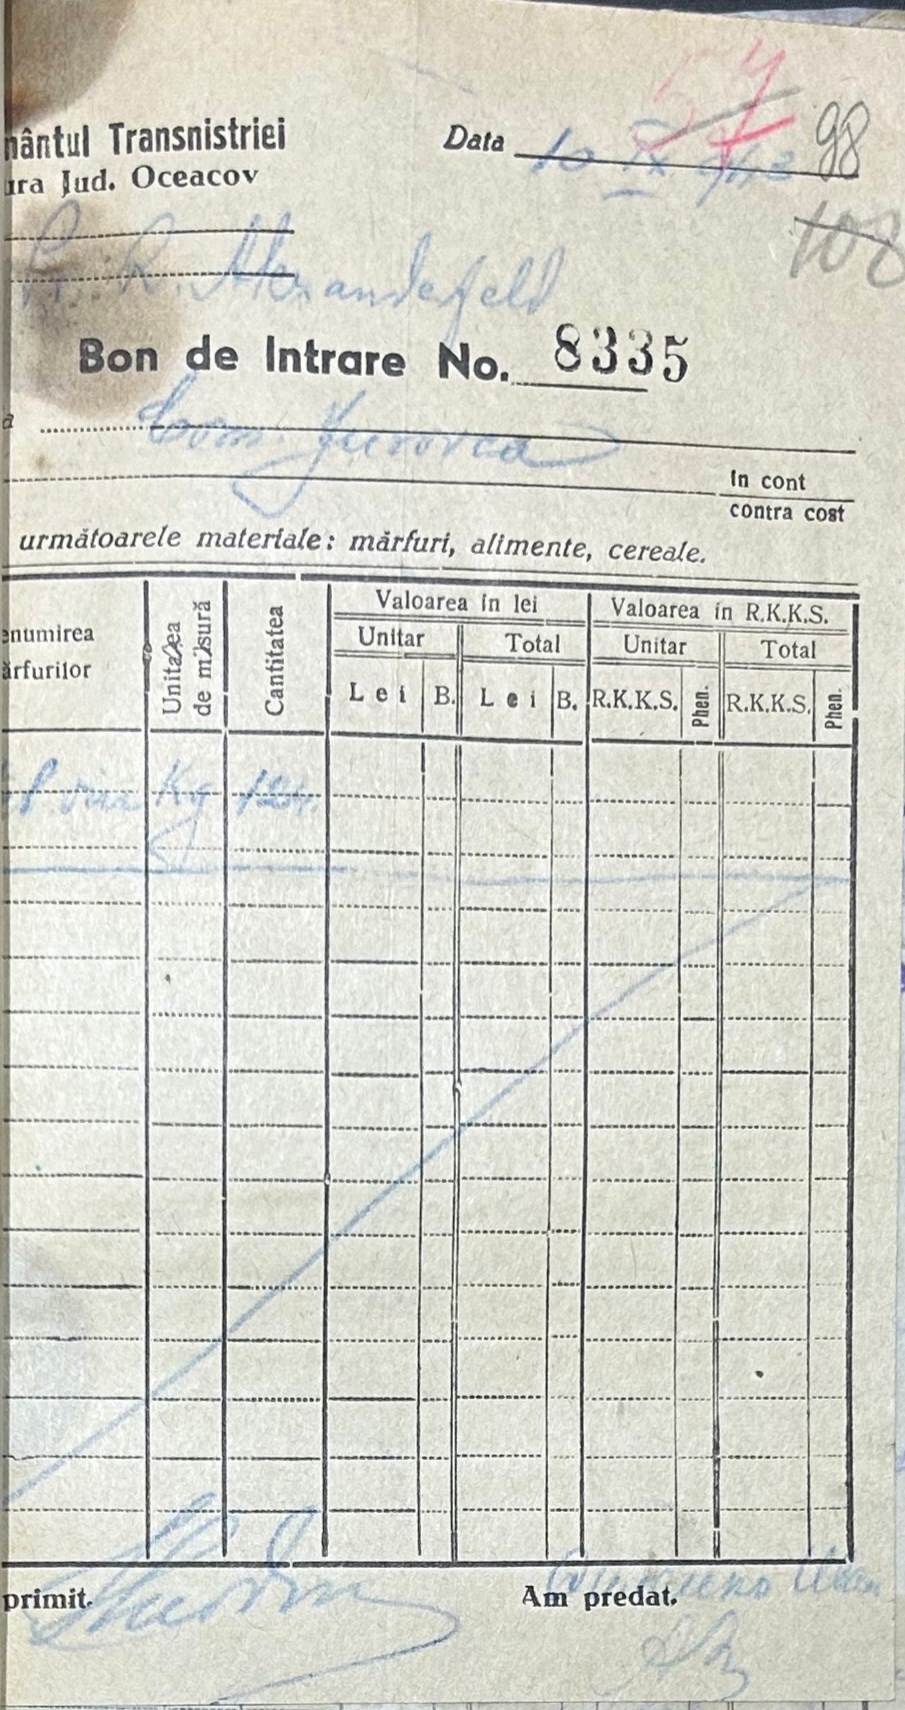 nântul Transnistriei
ura Jud. Oceacov
Data 10 IX 943
98
108
R. Alexanderfeld
Bon de Intrare No. 8335
a Com.
In cont
contra cost
următoarele materiale: mărfuri, alimente, cereale.
enumirea ărfurilor
Unitatea de măsură
Cantitatea
Valoarea în lei
Valoarea in R.K.K.S.
Unitar
Total
Unitar
Total
Lei
B.
Lei
B.
R.K.K.S.
Phen.
R.K.K.S.
Phen.
Kg 124
primit.
Am predat.